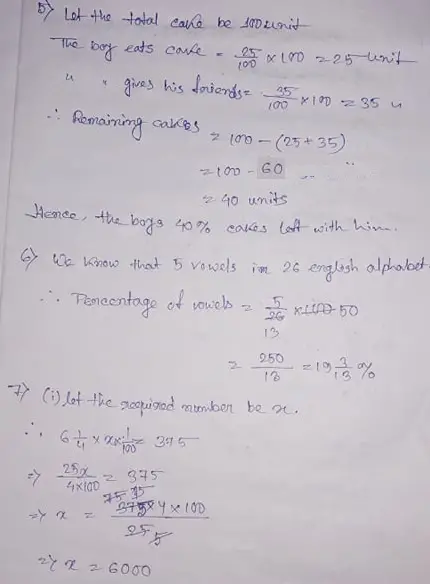 5) Let the total cake be 100 unit
The boy eats cake = 25/100 × 100 = 25 unit
" " gives his friends = 35/100 × 100 = 35 u
∴ Remaining cakes = 100 - (25 + 35)
= 100 - 60 " "
= 40 units
Hence, the boys 40% cakes left with him.
6) We know that 5 vowels in 26 english alphabet
∴ Percentage of vowels = 5/26 × 100 50
13
= 250/13 = 19 3/13 %
7) (i) let the required number be x.
∴ 6 1/4 × x × 1/100 = 375
⇒ 25x/4×100 = 375
75 15
⇒ x = 375 × 4 × 100 / 25 5
⇒ x = 6000